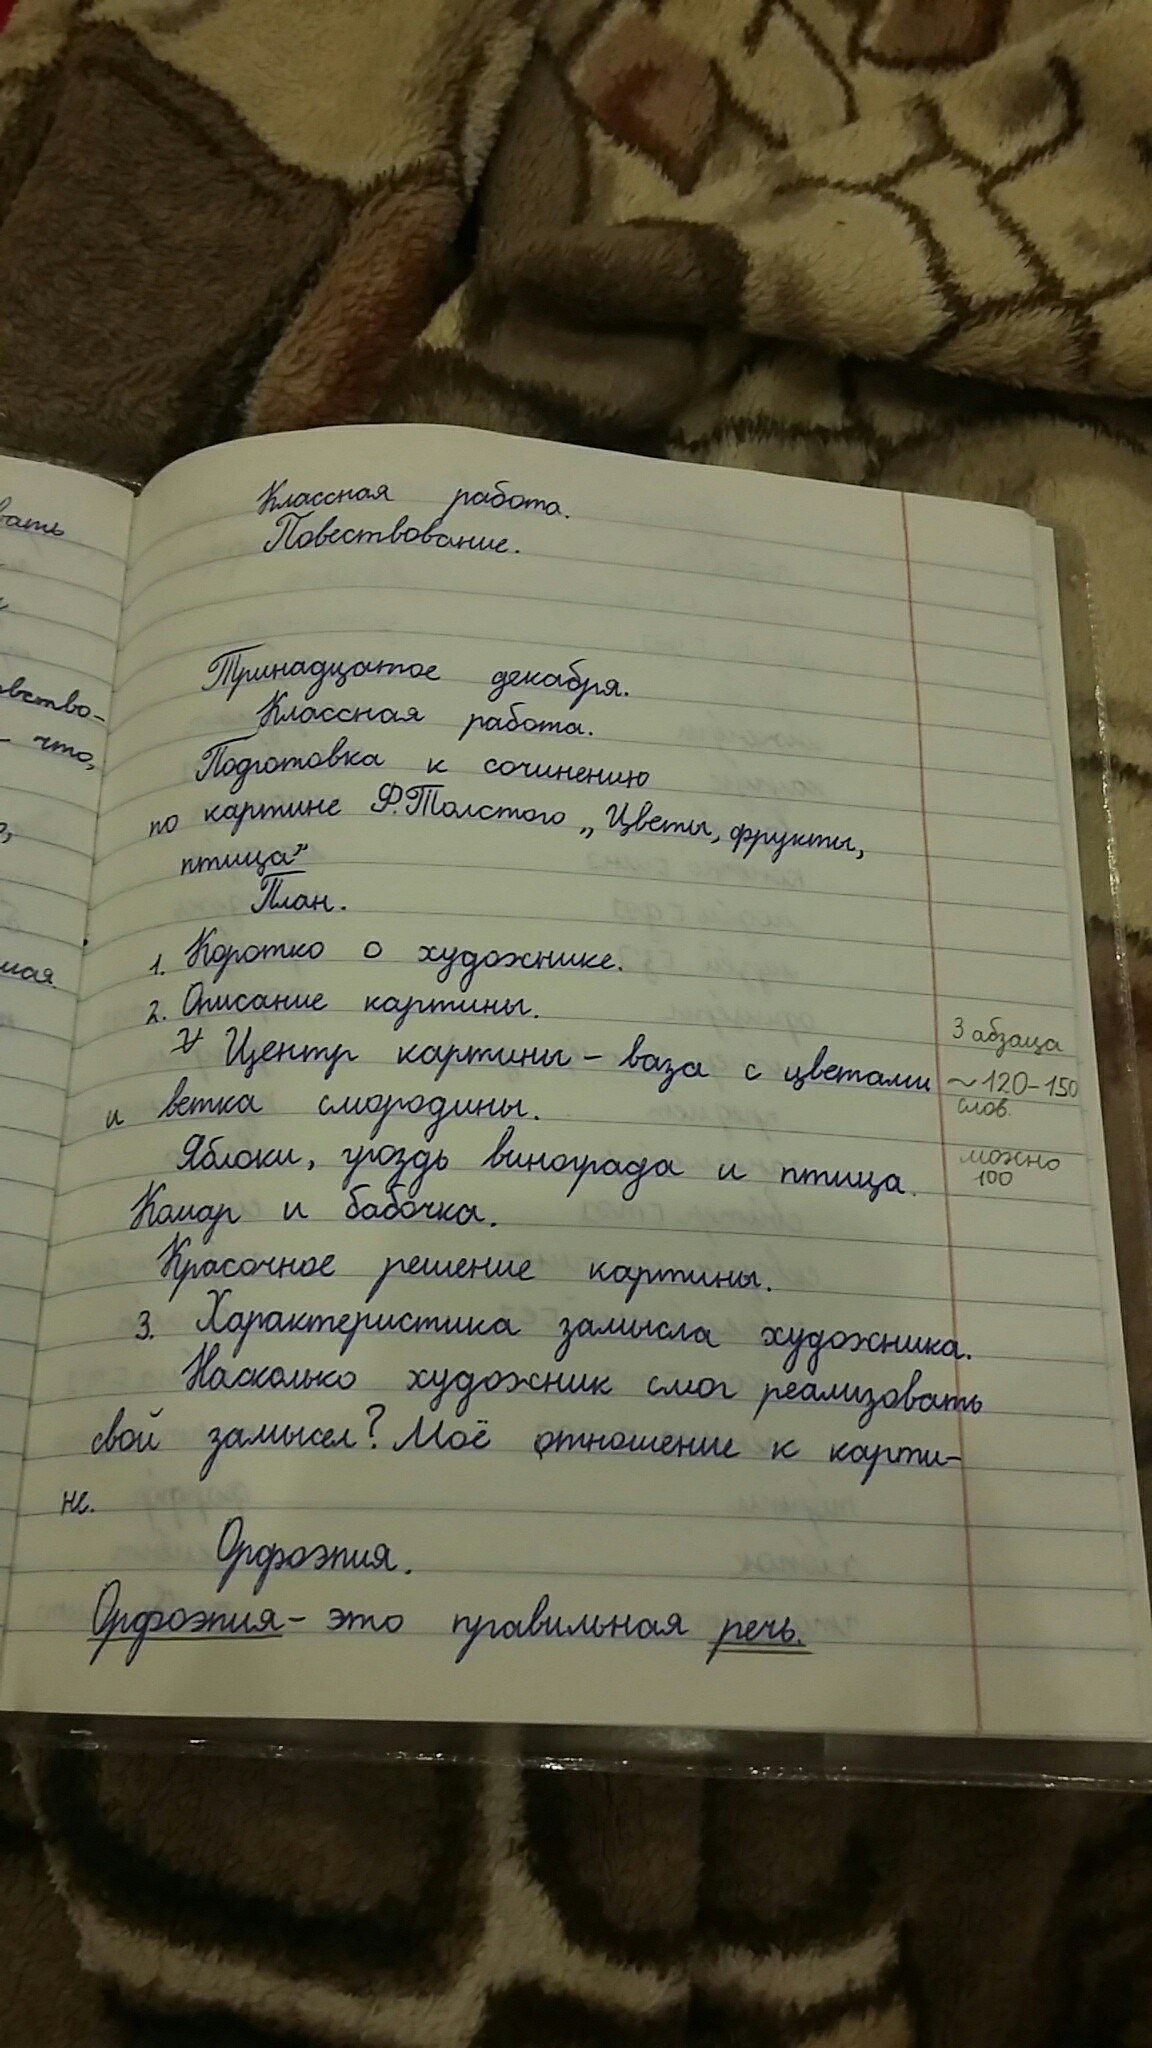 Классная работа.
Повествование.
Тринадцатое декабря.
Классная работа.
Подготовка к сочинению
по картине Ф.Толстого „Цветы, фрукты,
птица"
План.
1. Коротко о художнике.
2. Описание картины.
Центр картины – ваза с цветами
и ветка смородины.
Яблоки, гроздь винограда и птица.
Комар и бабочка.
Красочное решение картины.
3. Характеристика замысла художника.
Насколько художник смог реализовать
свой замысел? Моё отношение к карти-
не.
Орфоэпия.
Орфоэпия – это правильная речь.
3 абзаца
~ 120–150
слов.
можно
100
вать
что,